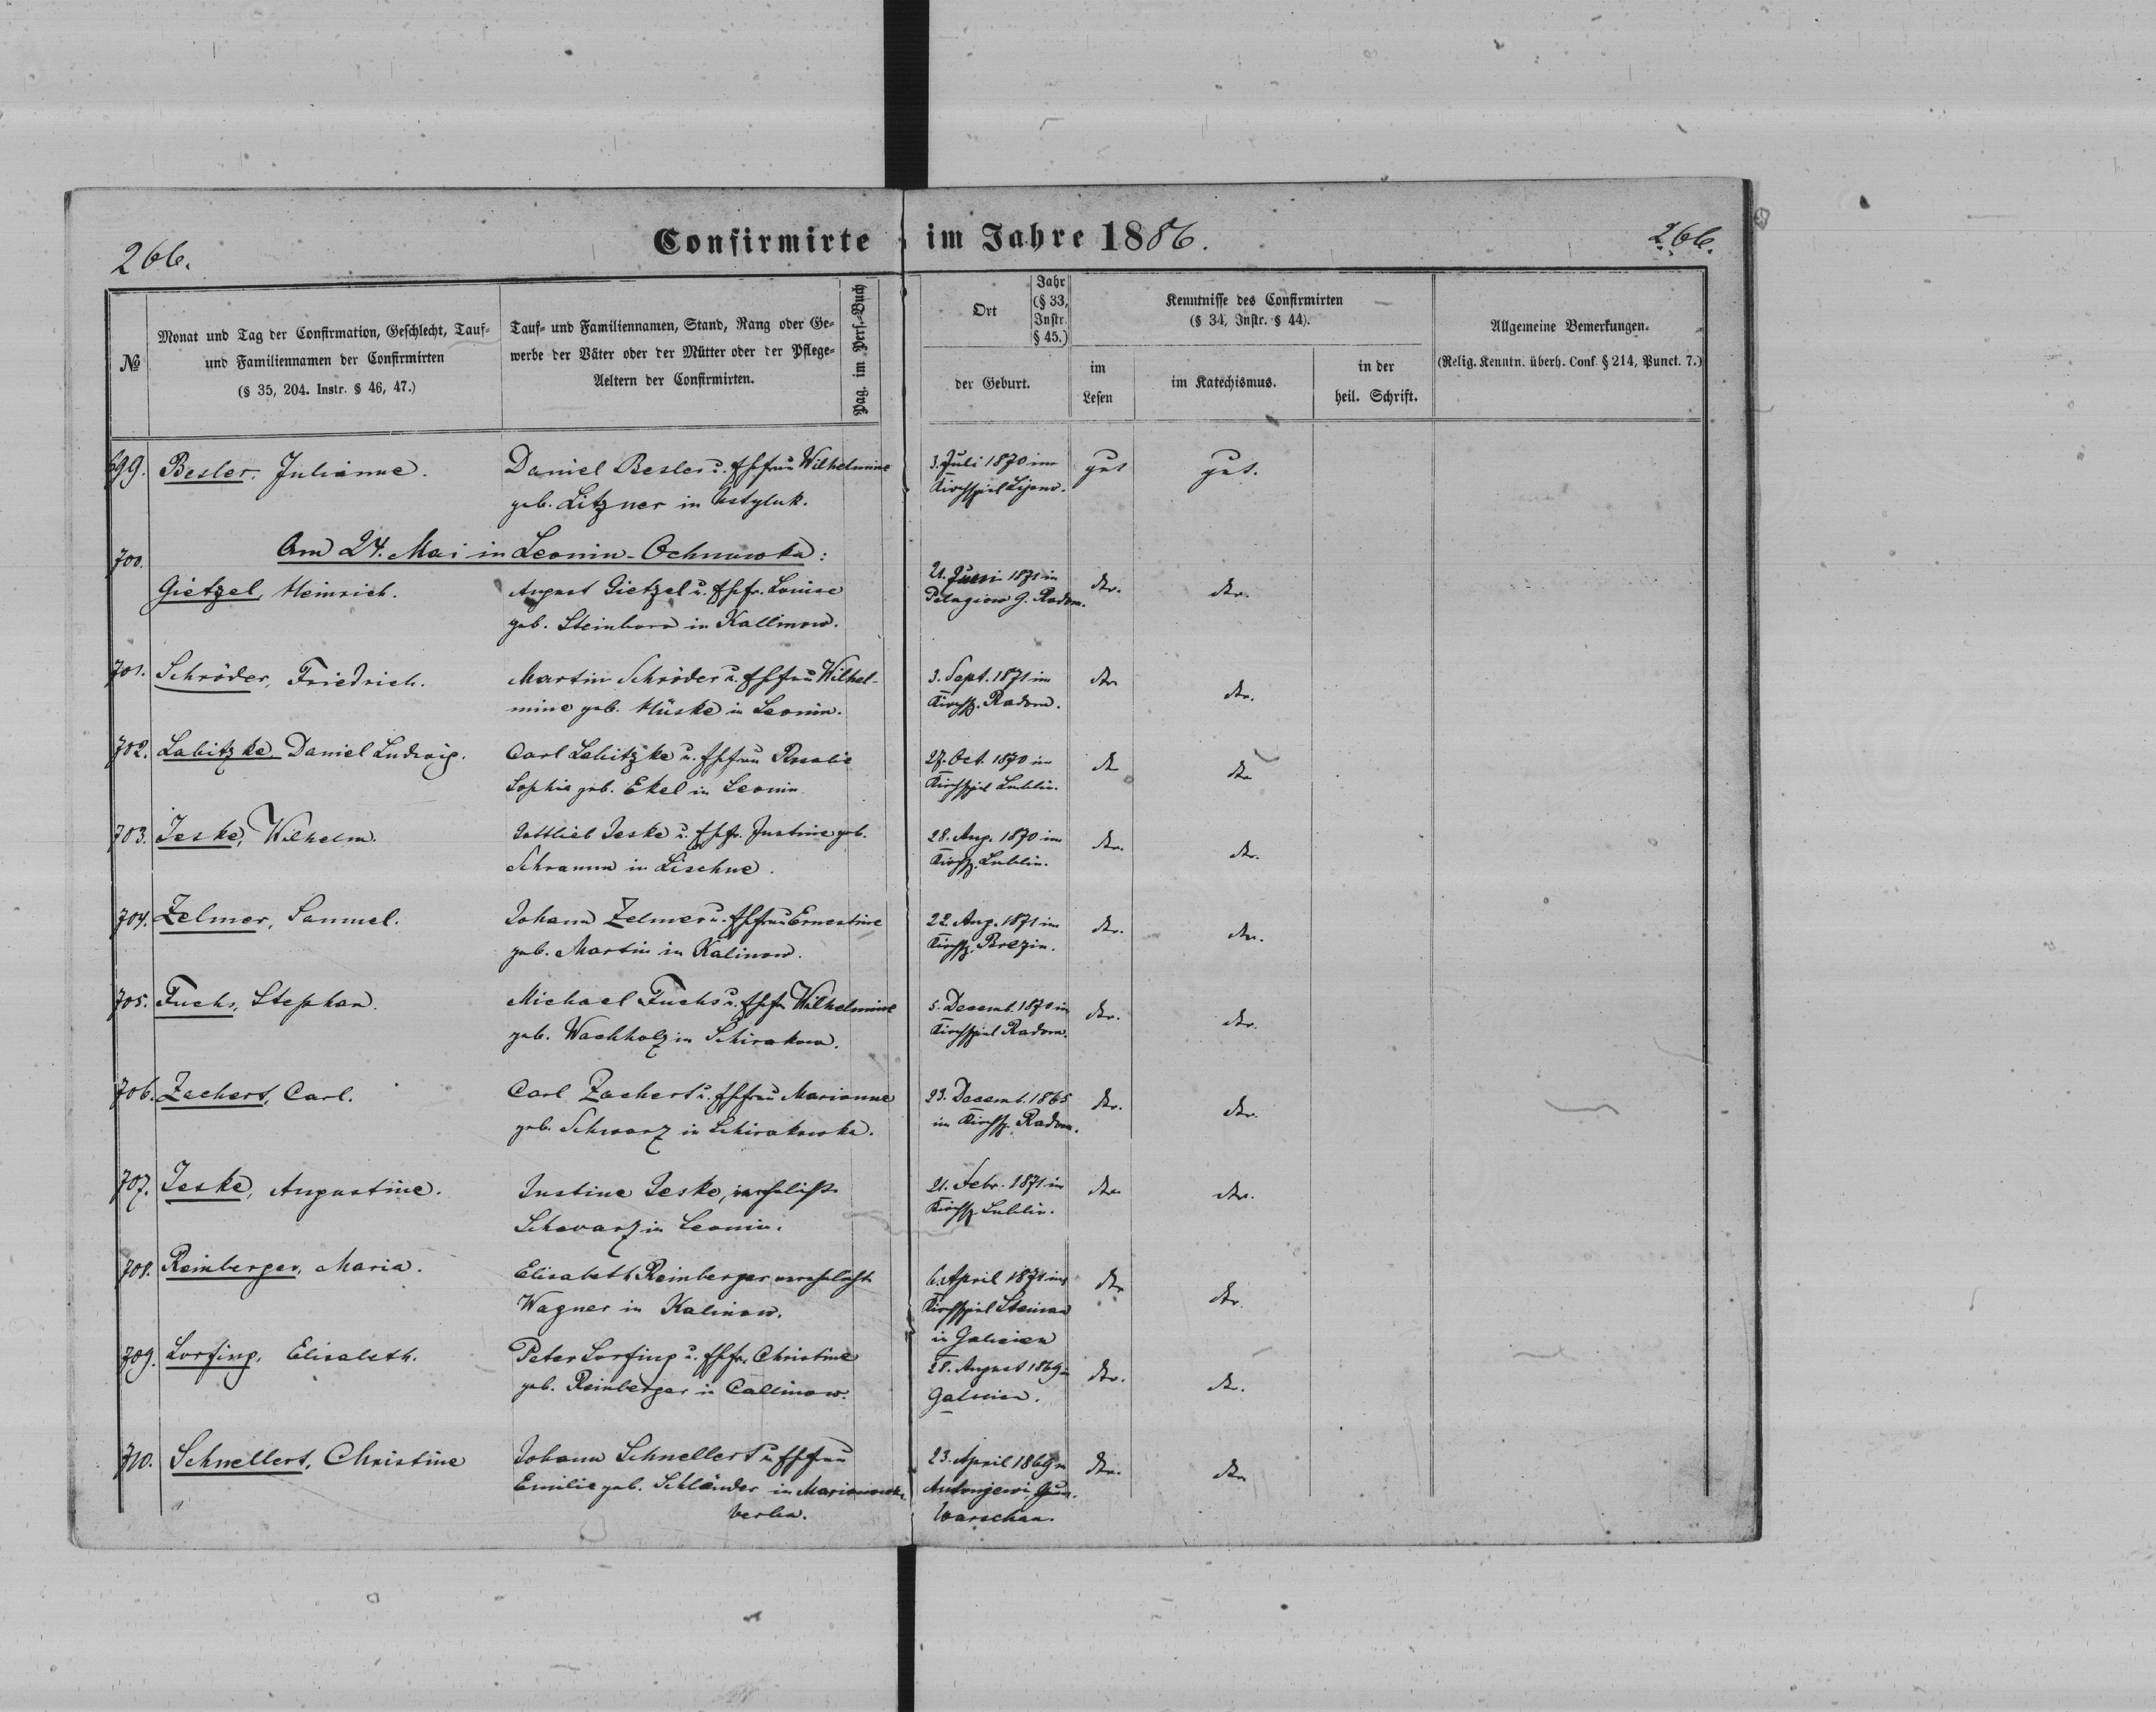 266.
Confirmirte im Jahre 1886.
266.
№
Monat und Tag der Confirmation, Geschlecht, Tauf-
und Familiennamen der Confirmirten
(§ 35, 204. Instr. § 46, 47.)
Tauf- und Familiennamen, Stand, Rang oder Ge-
werbe der Väter oder der Mütter oder der Pflege-
Aeltern der Confirmirten.
Pag. im Pers.-Buch
Ort
Jahr
(§ 33,
Instr.
§ 45.)
der Geburt.
Kenntnisse des Confirmirten
(§ 34, Instr. § 44).
im
Lesen
im Katechismus.
in der
heil. Schrift.
Allgemeine Bemerkungen.
(Relig. Kenntn. überh. Conf. § 214, Punct. 7.)
699. Besler, Julianne.
Daniel Besler u. Ehefrau Wilhelmine
geb. Litzner in
3. Juli 1870 im
Kirchspiel
gut
gut.
Am 24. Mai in Leonin-Ochnuwka:
700.
Gietzel, Heinrich.
August Gietzel u. Ehefr. Louise
geb. Steinborn in Kallinow.
21. Juni 1871 in
Pelagiow G. Radom.
dto.
dto.
701. Schröder, Friedrich.
Martin Schröder u. Ehefrau Wilhel-
mine geb. Hüske in Leonin.
3. Sept. 1871 im
Kirchsp. Radom.
dto
dto.
702. Labitzke Daniel Ludwig.
Carl Labitzke u. Ehefrau Rosalie
Sophia geb. Ekel in Leonin
27. Oct. 1870 im
Kirchspiel Lublin.
dto
dto
703. Jeske, Wilhelm.
Gottlieb Jeske u. Ehefr. Justine geb.
Schramm in Lischne.
28. Aug. 1870 im
Kirchsp. Lublin.
dto.
dto.
704. Zelmer, Samuel.
Johann Zelmer u. Ehefrau Ernestine
geb. Martin in Kalinow.
22. Aug. 1871 im
Kirchsp. Brezin.
dto.
dto.
705. Fuchs, Stephan.
Michael Fuchs u. Ehefr Wilhelmine
geb. Wachholz in Schirakow.
5. Decemb. 1870 im
Kirchspiel Radom.
dto.
dto.
706. Zachert, Carl.
Carl Zachert u. Ehefrau Marianne
geb. Schwarz in Schirakowka.
23. Decemb. 1865
im Kirchsp. Radom.
dto.
dto.
707. Jeske, Augustine.
Justine Jeske, verehelichte
Schwarz in Leonin.
21. Febr. 1871 im
Kirchsp. Lublin.
dto
dto.
708. Reinberger, Maria.
Elisabeth Reinberger verehelichte
Wagner in Kalinow.
6. April 1871 im
Kirchspiel Steinau
in Galicien
dto
dto.
709. Lorfing, Elisabeth.
Peter Lorfing u. Ehefr. Christine
geb. Reinberger in Callinow.
28. August 1869 in
Galicien.
dto.
dto.
710. Schnellert, Christine
Johann Schnellert u Ehefrau
Emilie geb. Schländer in Marianowka
Verba.
23. April 1869 in
Antonjewi, Gouv.
Warschau.
dto.
dto